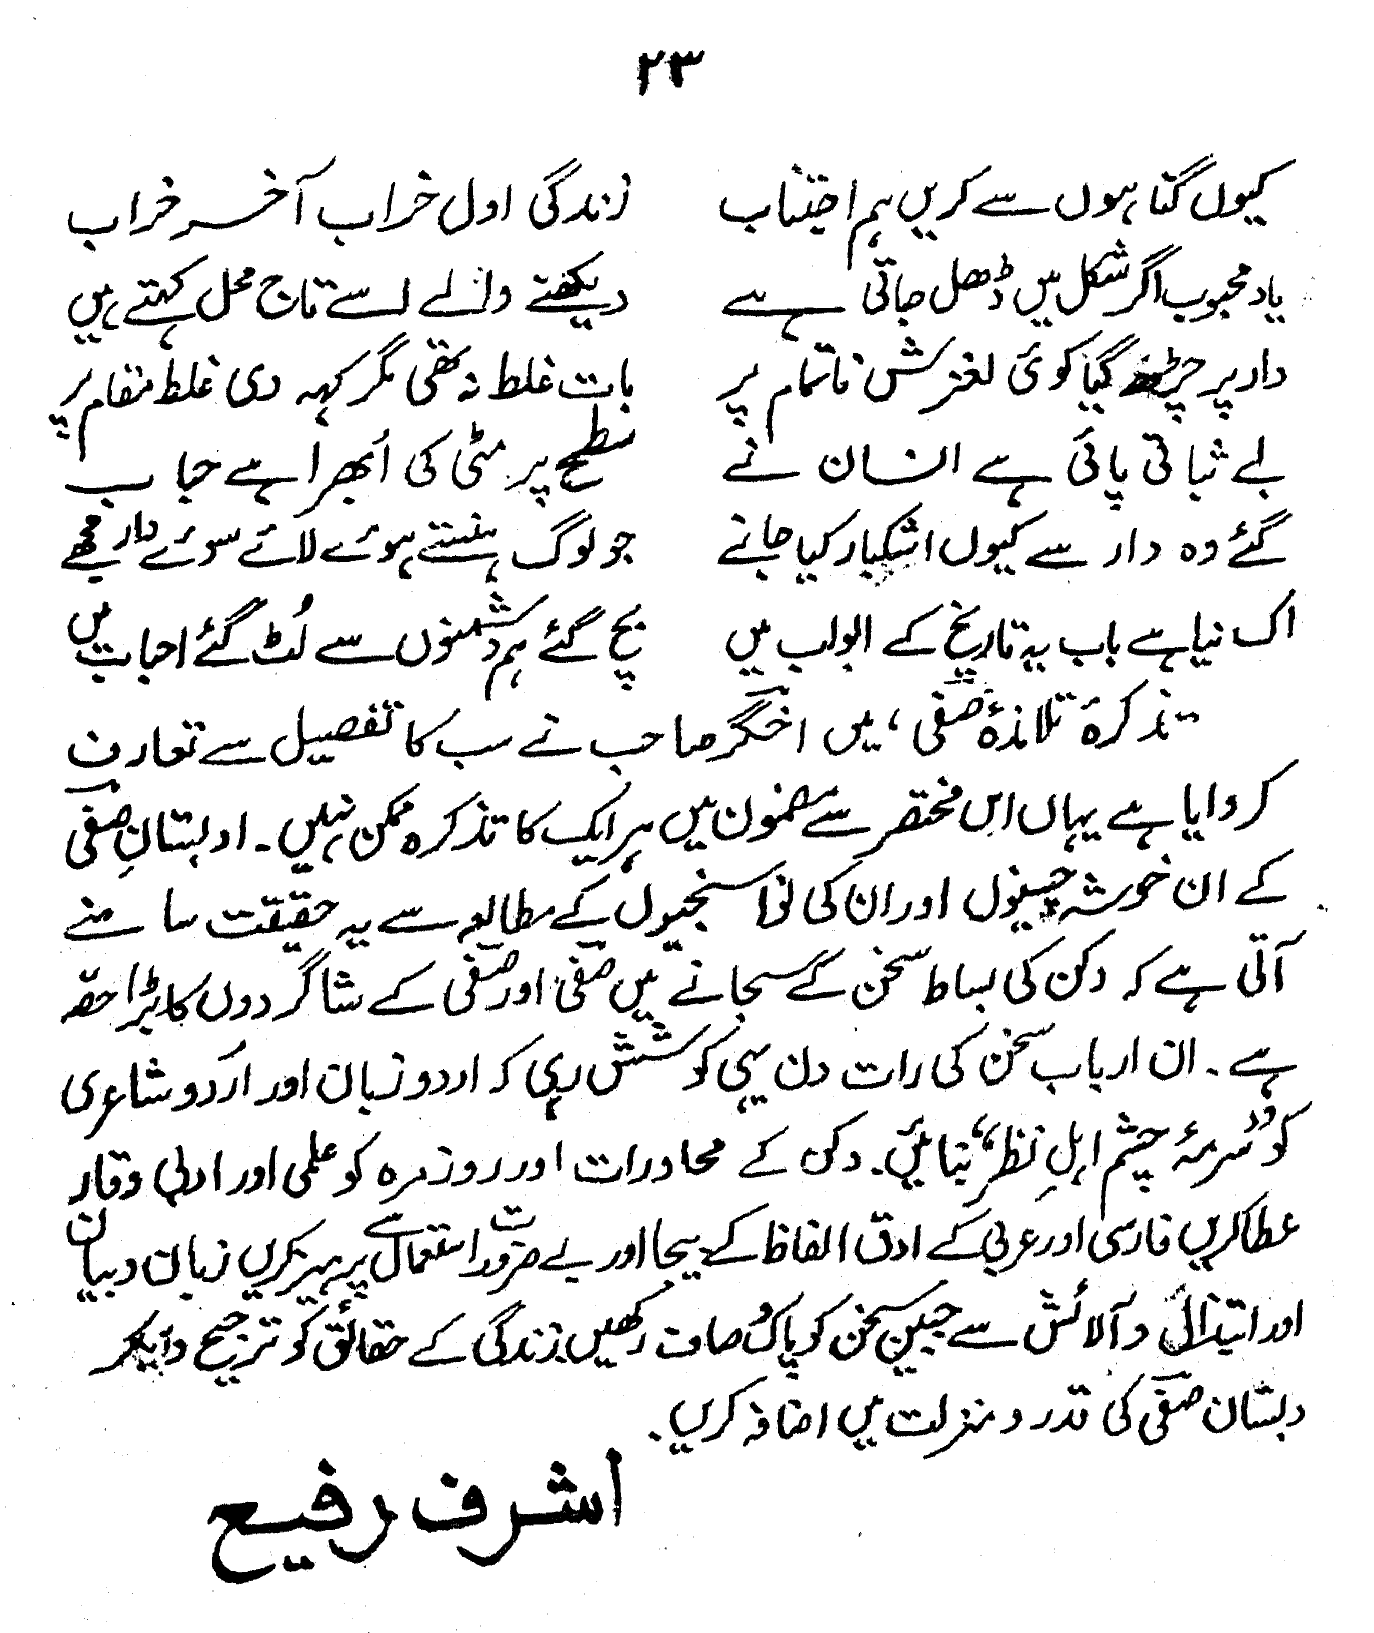 ۲۳
کیوں گناہوں سے کریں ہم اجتناب زندگی اول خراب آخر خراب
یاد محبوب اگر شکل میں ڈھل جاتی ہے دیکھنے والے اسے تاج محل کہتے ہیں
دار پر چڑھ گیا کوئی لغزش ناتمام پر بات غلط نہ تھی مگر کہہ دی غلط مقام پر
بے ثباتی پائی ہے انسان نے سطح پر مٹی کی اُبھرا ہے حباب
گئے وہ دار سے کیوں اشکبار کیا جانے جو لوگ ہنستے ہوئے لائے سوئے دار مجھے
اک نیا ہے باب یہ تاریخ کے ابواب میں بچ گئے ہم دشمنوں سے لُٹ گئے احباب میں
تذکرۂ تلامذۂ صفی، میں اخگر صاحب نے سب کا تفصیل سے تعارف
کروایا ہے یہاں اس مختصر سے مضمون میں ہر ایک کا تذکرہ ممکن نہیں۔ ادبستانِ صفی
کے ان خوشہ چینوں اور ان کی نوا سنجیوں کے مطالعہ سے یہ حقیقت سامنے
آتی ہے کہ دکن کی بساط سخن کے سجانے میں صفی اور صفی کے شاگردوں کا بڑا حصہ
ہے۔ ان ارباب سخن کی رات دن یہی کوشش رہی کہ اردو زبان اور اُردو شاعری
کو ”سرمۂ چشم اہلِ نظر“ بنائیں۔ دکن کے محاورات اور روزمرہ کو علمی اور ادبی وقار
عطا کریں فارسی اور عربی کے ادق الفاظ کے بیجا اور بے ضرورت استعمال سے پرہیز کریں زبان و بیان
اور ابتذال و آلائش سے جبین سخن کو پاک و صاف رکھیں زندگی کے حقائق کو ترجیح دے کر
دبستان صفی کی قدر و منزلت میں اضافہ کریں۔
اشرف رفیع